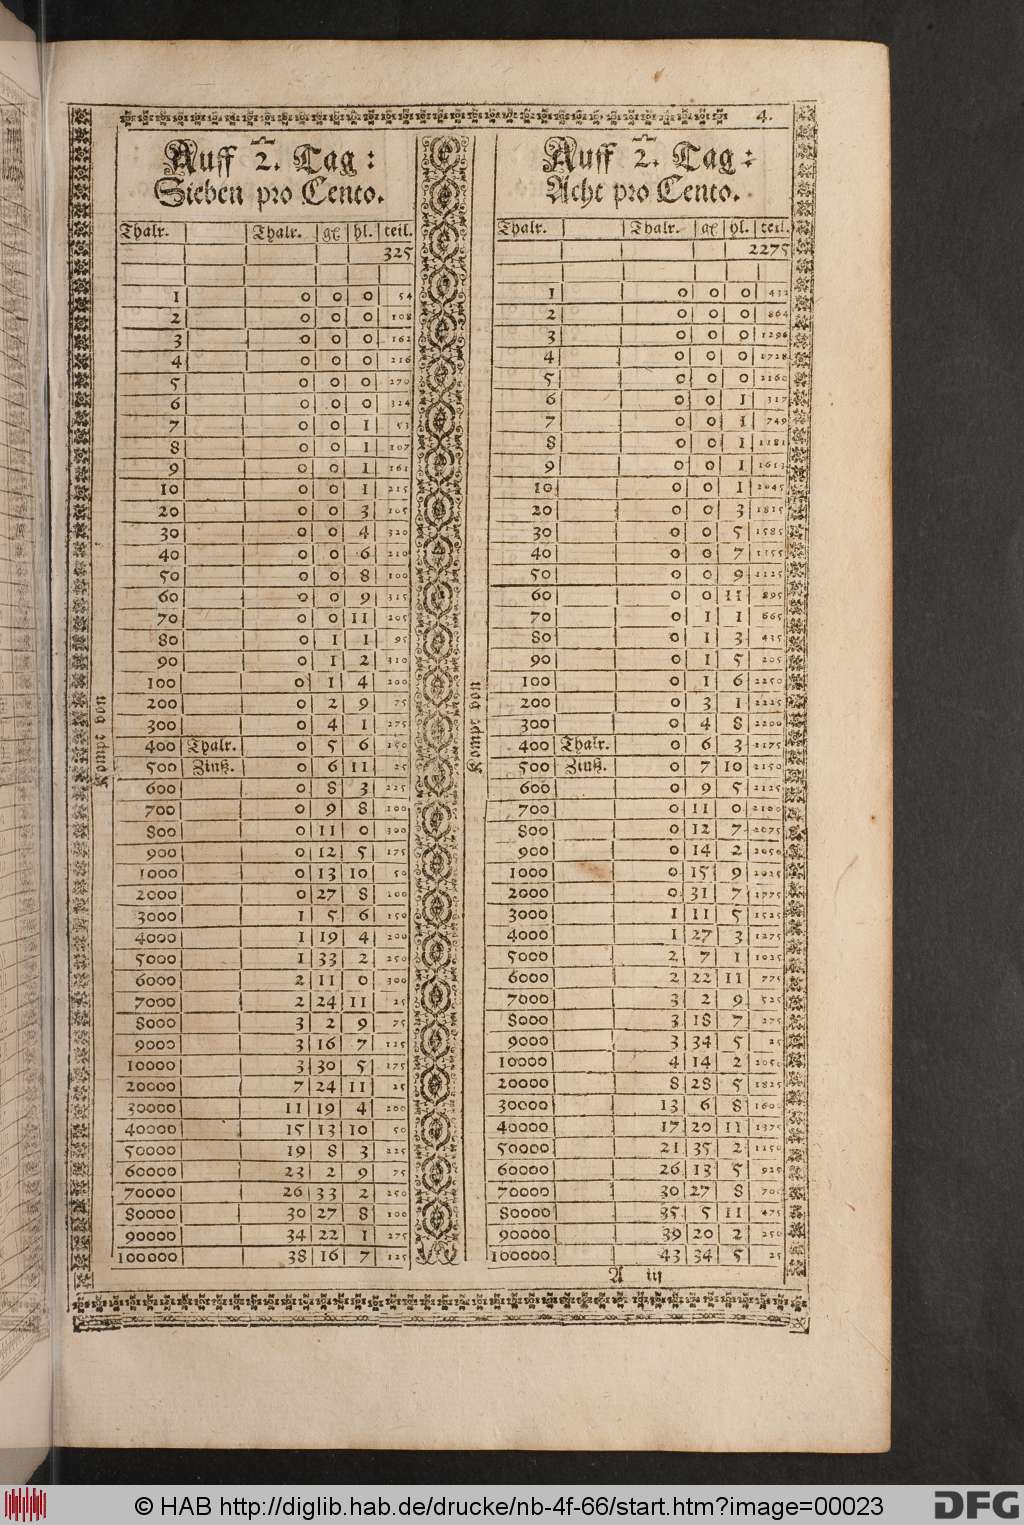 4.
Auff 2. Tag:
Sieben pro Cento.
Thalr. Thalr. gl hl. teil.
325
1 0 0 0 54
2 0 0 0 108
3 0 0 0 162
4 0 0 0 216
5 0 0 0 270
6 0 0 0 324
7 0 0 1 53
8 0 0 1 107
9 0 0 1 161
10 0 0 1 215
20 0 0 3 105
30 0 0 4 320
40 0 0 6 210
50 0 0 8 100
60 0 0 9 315
70 0 0 11 205
80 0 1 1 95
90 0 1 2 310
100 0 1 4 200
200 0 2 9 75
300 0 4 1 275
400 Thalr. 0 5 6 150
500 Zinß. 0 6 11 25
600 0 8 3 225
700 0 9 8 100
800 0 11 0 300
900 0 12 5 175
1000 0 13 10 50
2000 0 27 8 100
3000 1 5 6 150
4000 1 19 4 200
5000 1 33 2 250
6000 2 11 0 300
7000 2 24 11 25
8000 3 2 9 75
9000 3 16 7 125
10000 3 30 5 175
20000 7 24 11 25
30000 11 19 4 200
40000 15 13 10 50
50000 19 8 3 225
60000 23 2 9 75
70000 26 33 2 250
80000 30 27 8 100
90000 34 22 1 275
100000 38 16 7 125
Kompt von
Auff 2. Tag:
Acht pro Cento.
Thalr. Thalr. gl hl. teil.
2275
1 0 0 0 432
2 0 0 0 864
3 0 0 0 1296
4 0 0 0 1728
5 0 0 0 2160
6 0 0 1 317
7 0 0 1 749
8 0 0 1 1181
9 0 0 1 1613
10 0 0 1 2045
20 0 0 3 1815
30 0 0 5 1585
40 0 0 7 1355
50 0 0 9 1125
60 0 0 11 895
70 0 1 1 665
80 0 1 3 435
90 0 1 5 205
100 0 1 6 2250
200 0 3 1 2225
300 0 4 8 2200
400 Thalr. 0 6 3 2175
500 Zinß. 0 7 10 2150
600 0 9 5 2125
700 0 11 0 2100
800 0 12 7 2075
900 0 14 2 2050
1000 0 15 9 2025
2000 0 31 7 1775
3000 1 11 5 1525
4000 1 27 3 1275
5000 2 7 1 1025
6000 2 22 11 775
7000 3 2 9 525
8000 3 18 7 275
9000 3 34 5 25
10000 4 14 2 2050
20000 8 28 5 1825
30000 13 6 8 1600
40000 17 20 11 1375
50000 21 35 2 1150
60000 26 13 5 925
70000 30 27 8 700
80000 35 5 11 475
90000 39 20 2 250
100000 43 34 5 25
Kompt von
A iij
© HAB http://diglib.hab.de/drucke/nb-4f-66/start.htm?image=00023
DFG